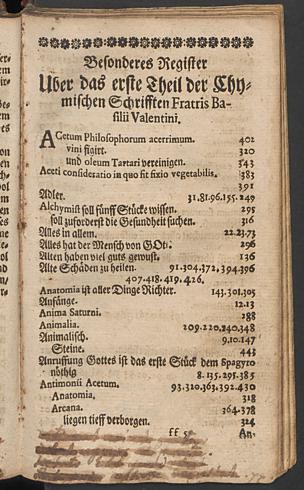 Besonderes Register
Uber das erste Theil der Chy-
mischen Schrifften Fratris Ba-
silii Valentini.
ACetum Philosophorum acerrimum. 402
vini figirt. 320
und oleum Tartari vereinigen. 343
Aceti consideratio in quo sit fixio vegetabilis. 383
391
Adler. 31.81.96.155.249
Alchymist soll fünff Stücke wissen. 295
soll zuforderst die Gesundheit suchen. 316
Alles in allem. 22.23.73
Alles hat der Mensch von GOtt. 296
Alten haben viel guts gewust. 136
Alte Schäden zu heilen. 91.304.372.394.396
407.418.419.426.
Anatomia ist aller Dinge Richter. 143.301.305
Anfänge. 12.13
Anima Saturni. 288
Animalia. 209.220.240.348
Animalisch. 9.10.147
Steine. 443
Anruffung Gottes ist das erste Stück dem Spagyro
nöthig 8.135.295.385
Antimonii Acetum. 93.320.363.392.430
Anatomia. 318
Arcana. 364.378
liegen tieff verborgen. 324
ff 5 An-